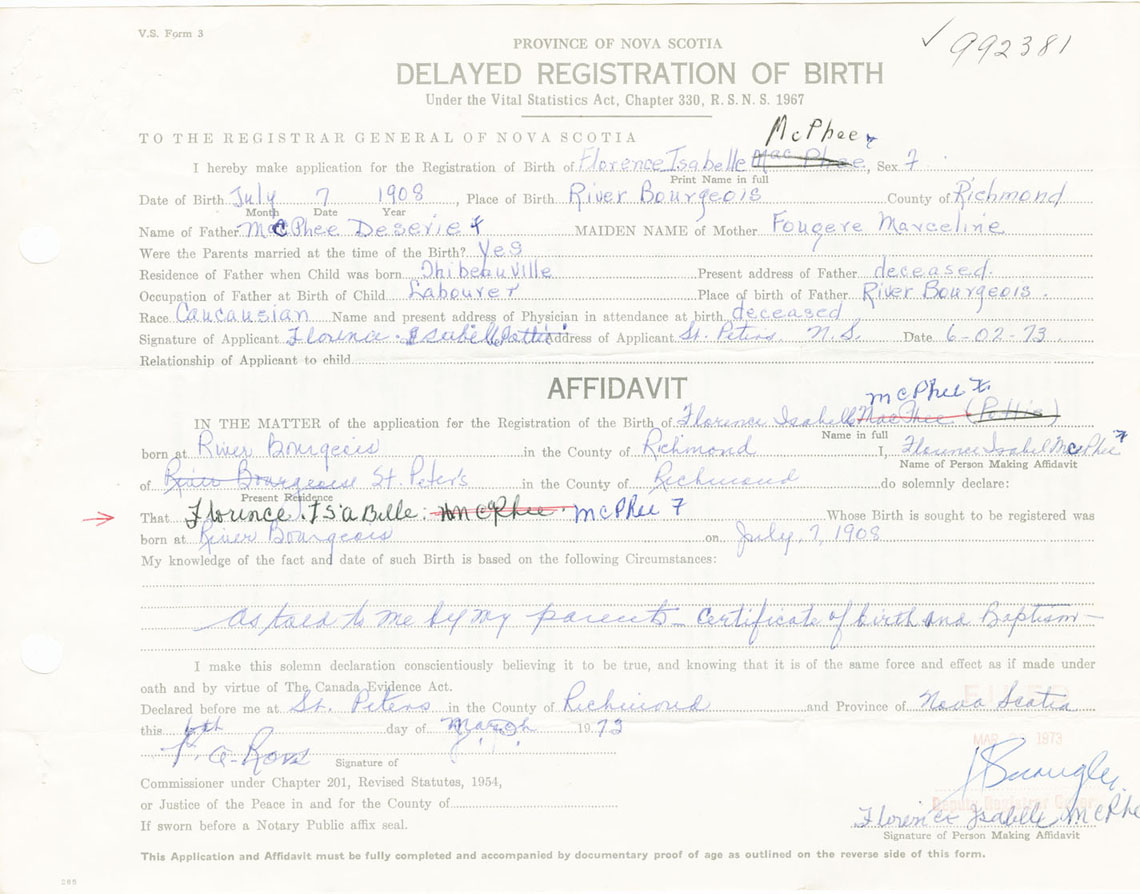 V.S. Form 3
✓ 992381
PROVINCE OF NOVA SCOTIA
DELAYED REGISTRATION OF BIRTH
Under the Vital Statistics Act, Chapter 330, R. S. N. S. 1967
TO THE REGISTRAR GENERAL OF NOVA SCOTIA
McPhee
I hereby make application for the Registration of Birth of Florence Isabelle Mac Phee, Sex F
Print Name in full
Date of Birth July 7 1908, Place of Birth River Bourgeois County of Richmond
Month Date Year
Name of Father McPhee Deserie MAIDEN NAME of Mother Fougere Marceline
Were the Parents married at the time of the Birth? Yes
Residence of Father when Child was born Thibeauville Present address of Father deceased.
Occupation of Father at Birth of Child Labourer Place of birth of Father River Bourgeois.
Race Caucausian Name and present address of Physician in attendance at birth deceased
Signature of Applicant Florence Isabelle Address of Applicant St. Peters N.S. Date 6-02-73
Relationship of Applicant to child
AFFIDAVIT
McPhee
IN THE MATTER of the application for the Registration of the Birth of Florence Isabelle MacPhee
Name in full
born at River Bourgeois in the County of Richmond I, Florence Isabel McPhee
Name of Person Making Affidavit
of River Bourgeoise St. Peter's in the County of Richmond do solemnly declare:
Present Residence
That Florence Isabelle McPhee McPhee Whose Birth is sought to be registered was
born at River Bourgeois on July, 7, 1908
My knowledge of the fact and date of such Birth is based on the following Circumstances:
as told to me by my parents - Certificate of birth and Baptism -
I make this solemn declaration conscientiously believing it to be true, and knowing that it is of the same force and effect as if made under
oath and by virtue of The Canada Evidence Act.
Declared before me at St. Peters in the County of Richmond and Province of Nova Scotia
this 6th day of March 1973
MAR 1973
Signature of
Commissioner under Chapter 201, Revised Statutes, 1954,
or Justice of the Peace in and for the County of
Deputy Registrar General
Florence Isabelle McPhe
If sworn before a Notary Public affix seal.
Signature of Person Making Affidavit
This Application and Affidavit must be fully completed and accompanied by documentary proof of age as outlined on the reverse side of this form.